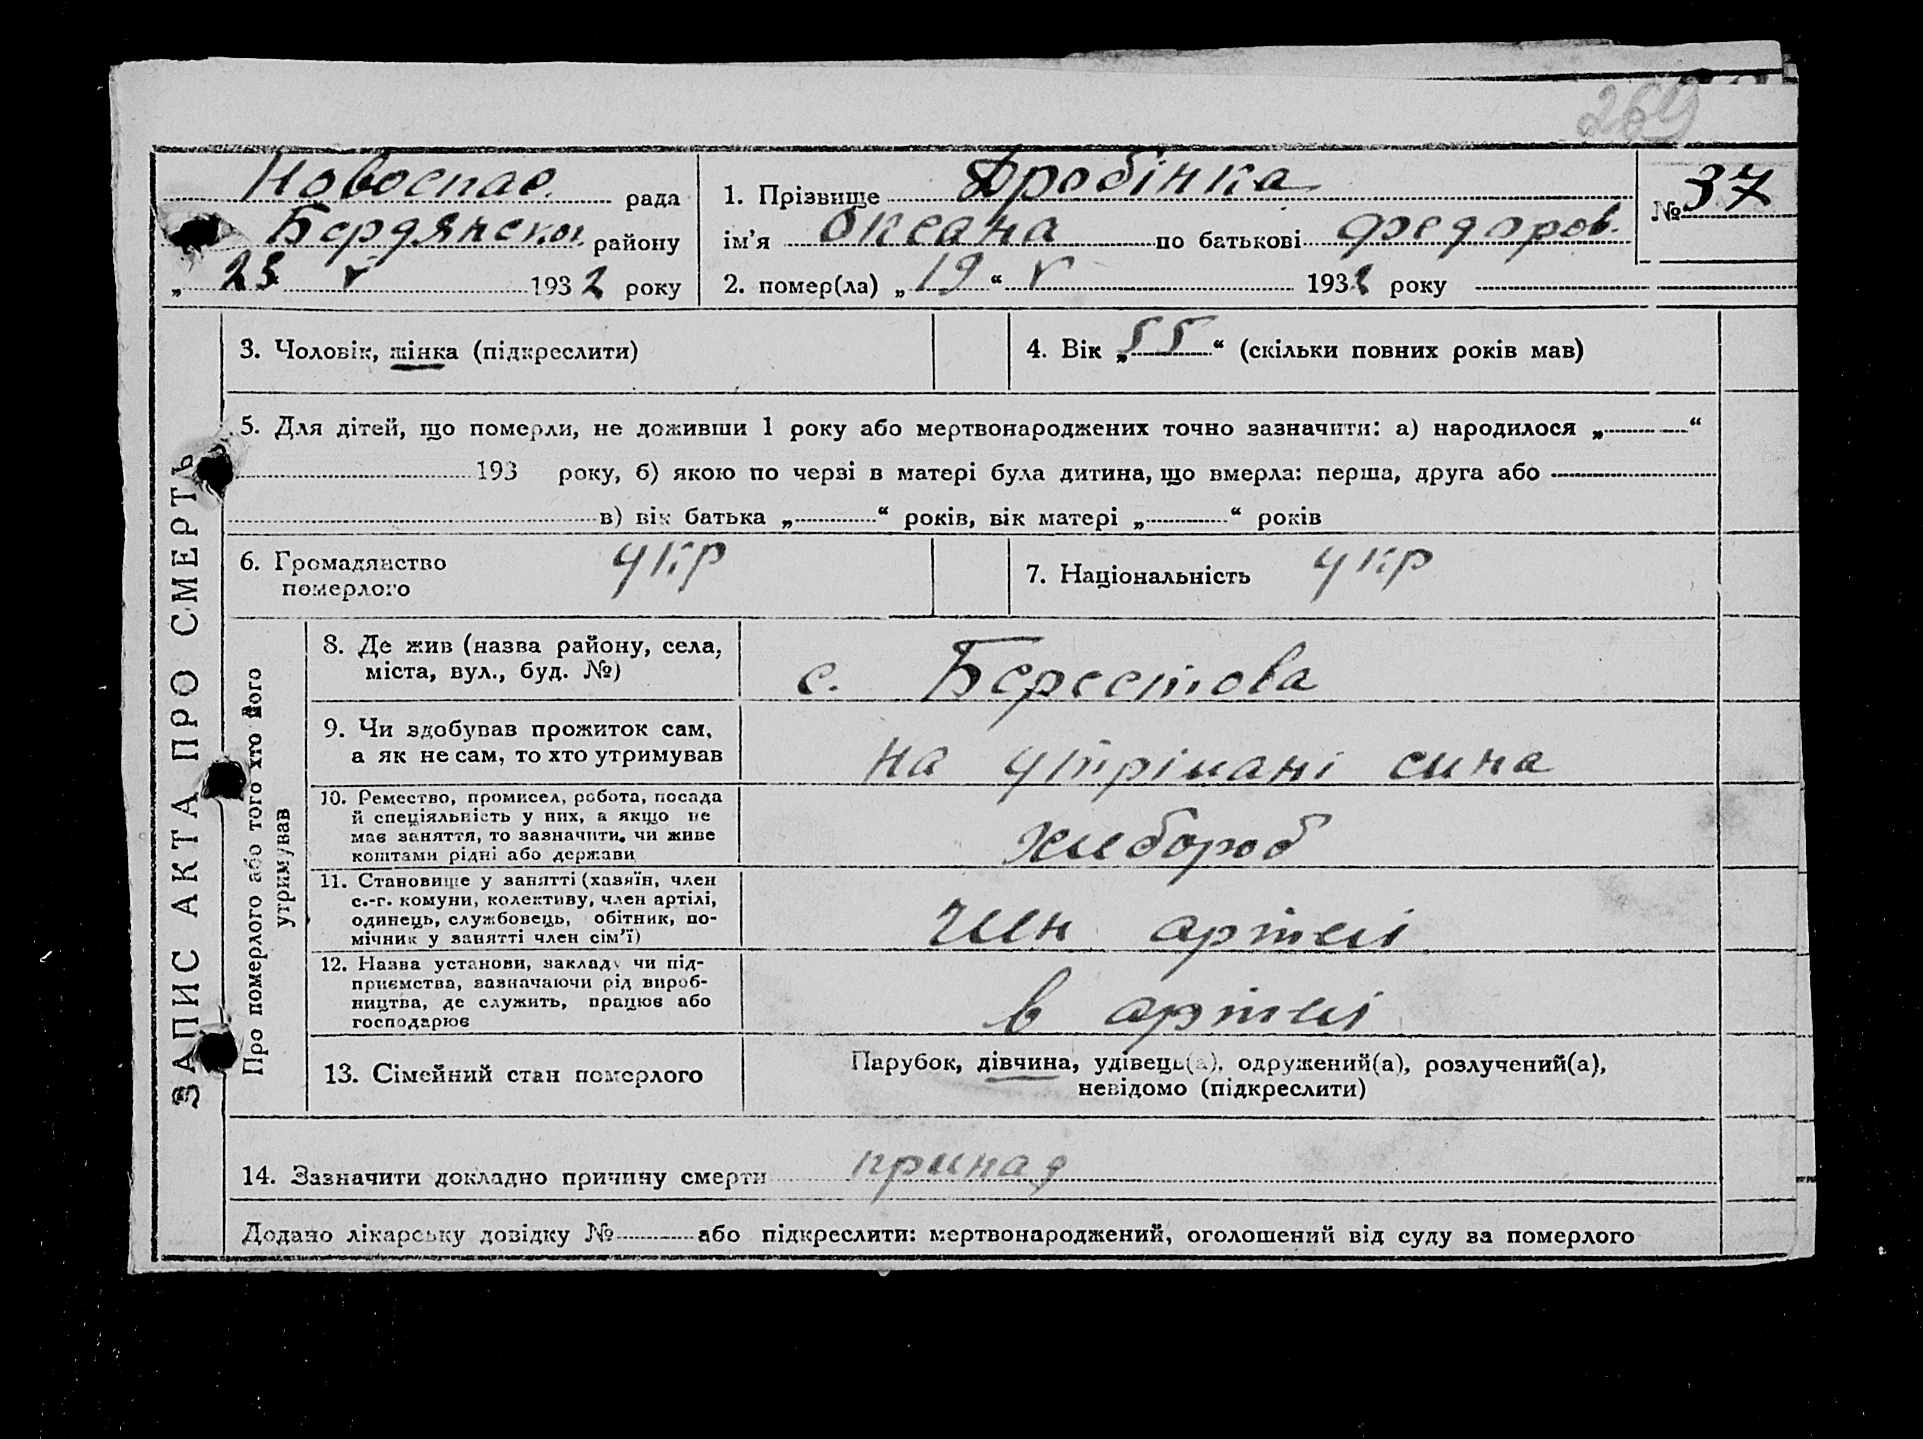 269
Новоспас. рада
Бердянськ. району
„ 23 V 1932 року
1. Прізвище Дробінка
ім’я Оксана по батькові Федоров.
2. помер(ла) „ 19 “ V 1932 року
№ 37
ЗАПИС АКТА ПРО СМЕРТЬ
3. Чоловік, жінка (підкреслити)
4. Вік „ 55 “ (скільки повних років мав)
5. Для дітей, що померли, не доживши 1 року або мертвонароджених точно зазначити: а) народилося „ “
193 року, б) якою по черзі в матері була дитина, що вмерла: перша, друга або
в) вік батька „ “ років, вік матері „ “ років
6. Громадянство
померлого
укр
7. Національність укр
Про померлого або того хто його
утримував
8. Де жив (назва району, села,
міста, вул., буд. №)
с. Берестова
9. Чи здобував прожиток сам,
а як не сам, то хто утримував
на утрімані сина
10. Ремество, промисел, робота, посада
й спеціяльність у них, а якщо не
має заняття, то зазначити, чи живе
коштами рідні або держави
хлібороб
11. Становище у занятті (хазяїн, член
с.-г. комуни, колективу, член артілі,
одинець, службовець, обітник, по-
мічник у занятті член сім’ї)
член артелі
12. Назва установи, закладу чи під-
приємства, зазначаючи рід вироб-
ництва, де служить, працює або
господарює
в артелі
13. Сімейний стан померлого
Парубок, дівчина, удівець(а), одружений(а), розлучений(а),
невідомо (підкреслити)
14. Зазначити докладно причину смерти припад
Додано лікарську довідку № або підкреслити: мертвонароджений, оголошений від суду за померлого